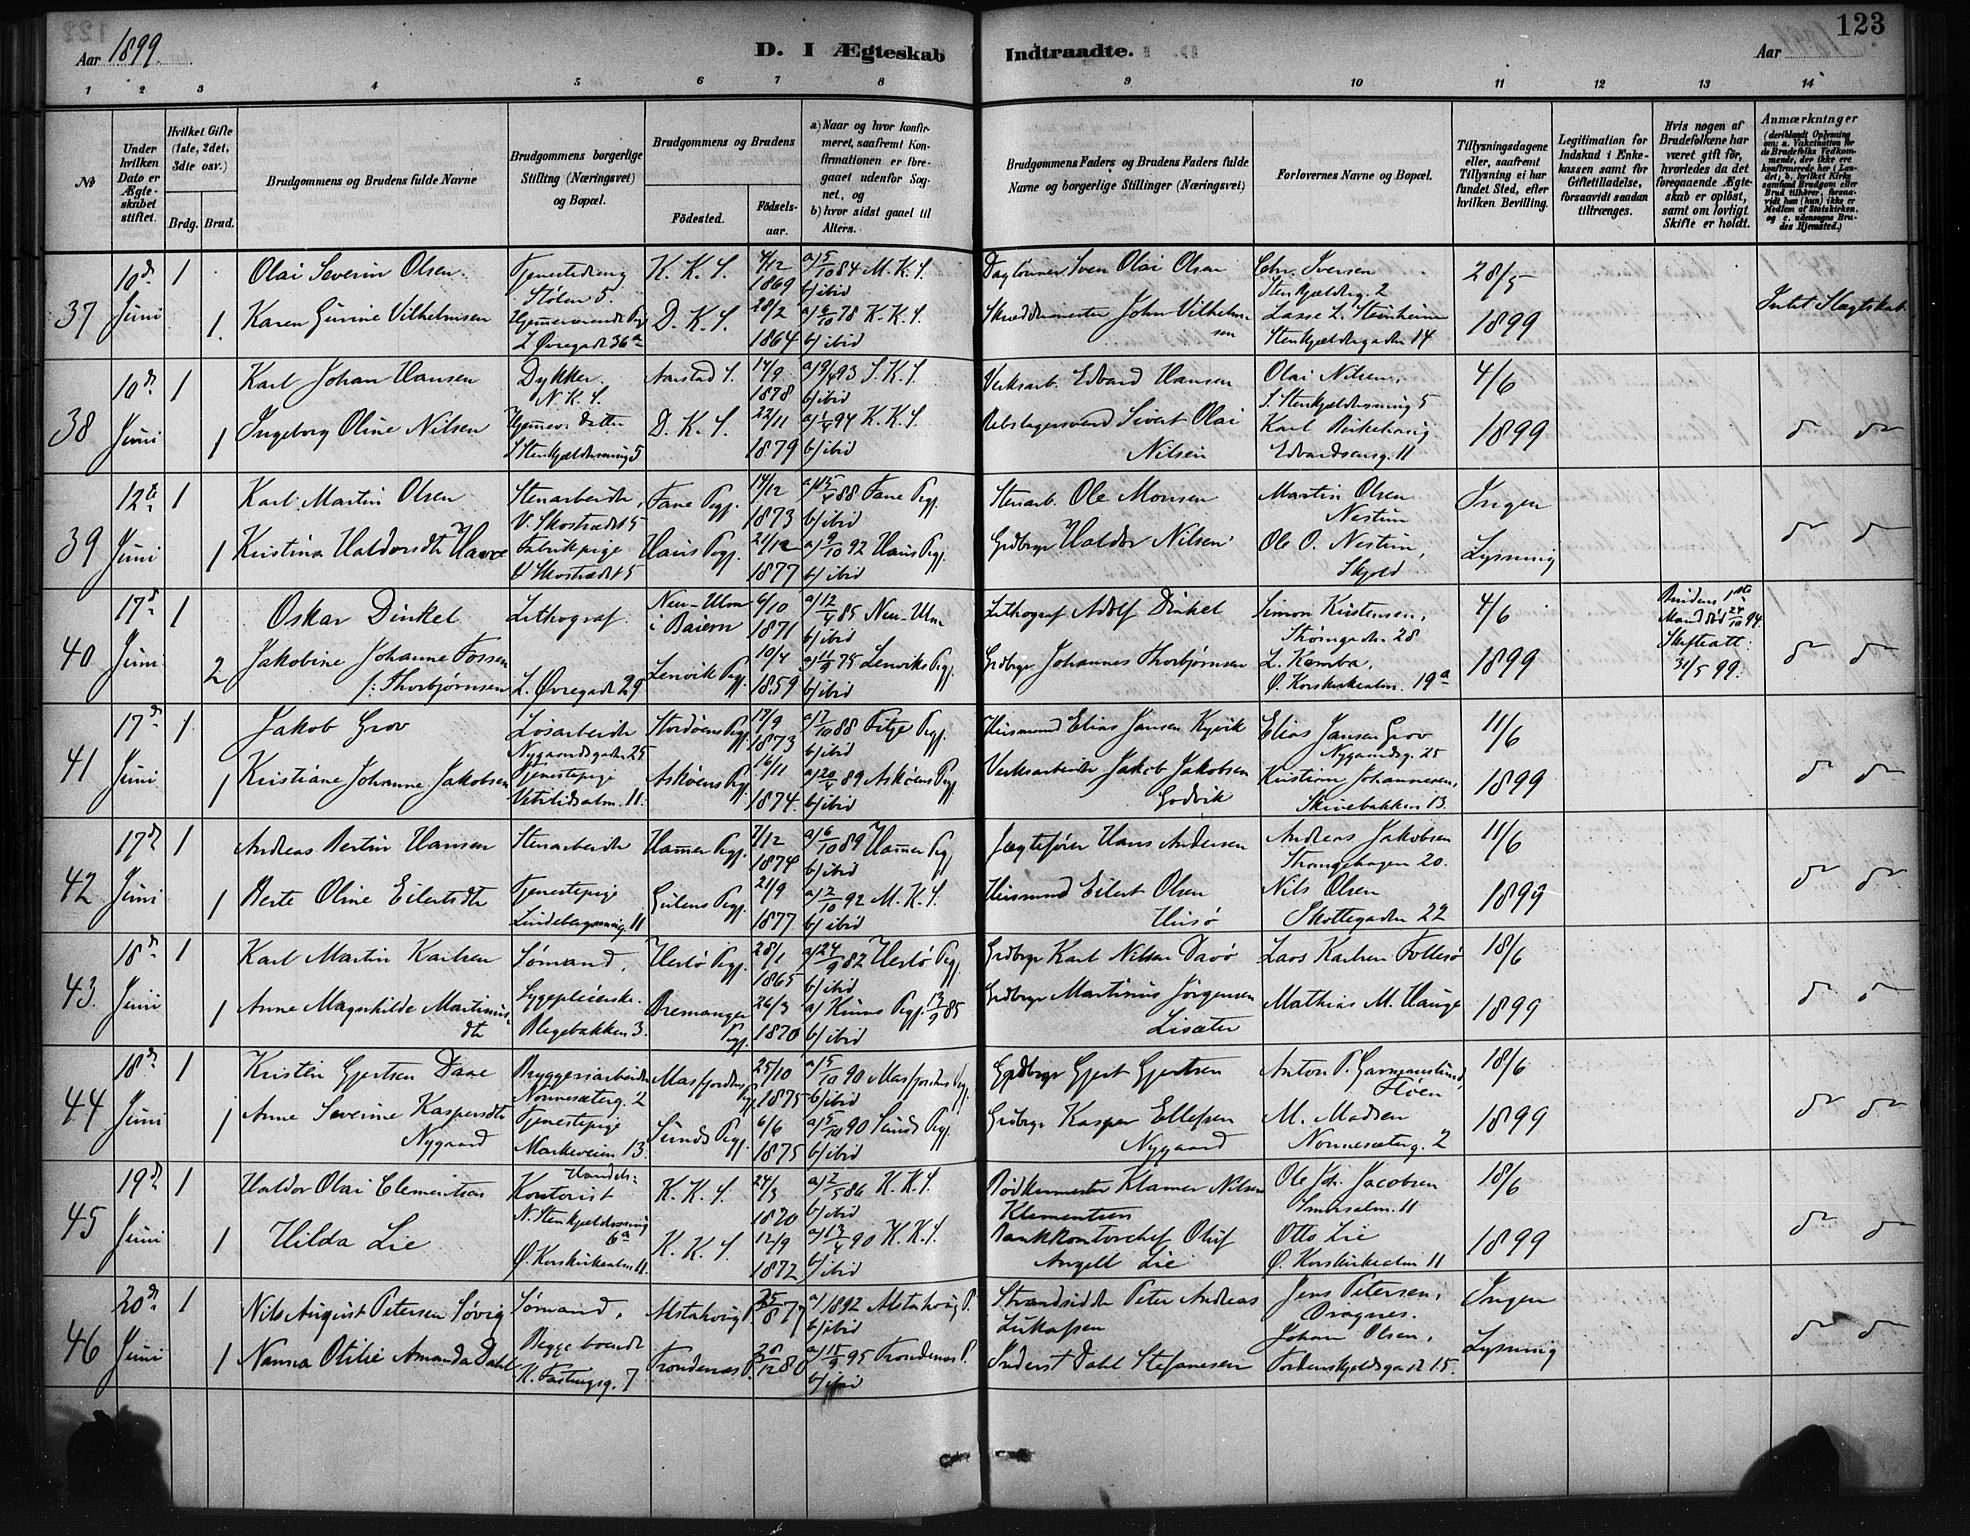 123
Aar 1899.
D. I Ægteskab Indtraadte.
Aar
1 2 3 4 5 6 7 8 9 10 11 12 13 14
No
Under hvilken Dato er Ægteskabet stiftet.
Hvilket Gifte (1ste, 2det, 3die osv.)
Brdg. Brud.
Brudgommens og Brudens fulde Navne
Brudgommens borgerlige Stilling (Næringsvei) og Bopæl.
Brudgommens og Brudens
Fødested.
Fødselsaar.
a) Naar og hvor konfirmeret, saafremt Konfirmationen er foregaaet udenfor Sognet, og
b) hvor sidst gaaet til Alters.
Brudgommens Faders og Brudens Faders fulde Navne og borgerlige Stillinger (Næringsvei)
Forlovernes Navne og Bopæl.
Tillysningsdagene eller, saafremt Tillysning ei har fundet Sted, efter hvilken Bevilling.
Legitimation for Indskud i Enkekassen samt for Giftetilladelse, forsaavidt saadan tiltrænges.
Hvis nogen af Brudefolkene har været gift før, hvorledes da det foregaaende Ægteskab er opløst, samt om lovligt Skifte er holdt.
Anmærkninger
(deriblandt Oplysning om: a. Vaccination for de Brudefolks Vedkommende, der ikke ere konfirmerede her i Landet; b. hvilket Kirkesamfund Brudgom eller Brud tilhører, forsaavidt han (hun) ikke er Medlem af Statskirken, og c. udensogns Brudes Hjemsted.)
37 10de Juni 1 Olai Severin Olsen Tjenestedreng Stølen 5. K. K. S. 4/12 1869 a) 5/10 84 M. K. S. b) ibid Daglønner Sven Olai Olsen Chr. Iversen Stenkjelderg. 2 28/5
1 Karen Gurine Vilhelmsen L. Øvregade 36a D. K. S. 28/2 1864 a) 6/10 78 K. K. S. b) ibid Skreddermester John Vilhelmsen Lasse L. Steinheim Stenkjeldergaden 14 1899 Intet Slægtskab.
38 10de Juni 1 Karl Johan Hansen Dykker N. K. S. Aarstad S. 14/9 1878 93 S. K. S. b) ibid Verksarb. Edvard Hansen Olai Nilsen, S. Stenkjeldersmug 5 4/6
1 Ingeborg Oline Nilsen Hjemmev. Datter S. Stenkjeldersmug 5 D. K. S. 22/11 1879 94 K. K. S. b) ibid Sivert Olai Nilsen Karl Birkehaug Edvardsensg. 11 1899 do do
39 12te Juni 1 Karl Martin Olsen Stenarbeider, V. Skostrædet 5 Fane Pgj. 14/12 1873 a) 15/4 88 Fane Pgj. b) ibid Stenarb. Ole Monsen Martin Olsen Nestun Ingen
1 Kristina Haldorsdtr Havre Fabrikpige V. Skostrædet 5 Haus Pgj. 21/12 1877 a) 9/10 92 Haus Pgj. b) ibid Grdbrgr Haldor Nilsen Ole O. Nestun, Skjold Lysning do do
40 17de Juni 1 Oskar Dinkel Lithograf Neu-Ulm i Baiern 6/10 1871 a) 12/4 85 Neu-Ulm b) ibid Lithograf Adolf Dinkel Simon Kristensen, Strømgaden 28 4/6 Brudens 1ste Mand død 24/10 94. Skifteatt. 31/5 99.
2 Jakobine Johanne Fossen f: Thorbjørnsen L. Øvregade 29 Lenvik Pgj. 10/4 1859 a) 11/7 75 Lenviks Pgj. b) ibid Grdbrgr Johannes Thorbjørnsen L. Kamba, Ø. Korskirkealm. 19a 1899 do do
41 17de Juni 1 Jakob Grov Løsarbeider Nygaardsgaden 25 Stordøens Pgj. 17/9 1873 a) 7/10 88 Fitje Pgj. b) ibid Husmand Elias Jansen Kyvik Elias Jansen Grov Nygaardsg. 25 11/6
1 Kristiane Johanne Jakobsen Tjenestepige Vetrlidsalm. 11. Askøens Pgj. 16/11 1874. a) 20/4 89 Askøens Pgj. b) ibid Verksarbeider Jakob Jakobsen Godvik Kristian Johannesen, Skivebakken 13. 1899 do do
42 17de Juni 1 Andreas Bertin Hansen Stenarbeider Hammer Pgj. 7/12 1874 a) 6/10 89 Hammer Pgj. b) ibid Jægtefører Hans Andersen Andreas Jakobsen Strangehagen 20. 11/6
1 Berte Oline Eilertsdtr Tjenestepige 11 Gulens Pgj. 21/9 1877 a) 2/10 92 M. K. S. b) ibid Husmand Eilert Olsen Husø Nils Olsen Skottegaden 22 1899 do do
43. 18de Juni 1 Karl Martin Karlsen Sømand, Herlø Pgj. 28/1 1865 a) 24/9 82 Herlø Pgj. b) ibid Grdbrgr Karl Nilsen Davø Lars Karlsen Follesø 18/6
1 Anne Magnhilde Martinusdtr Sygepleierske Blegebakken 3. Bremanger Pgj. 26/3 1870 a) Kinns Pgj. 13/9 85 b) ibid Grdbrgr Martinus Jørgensen Lisæter Mathias M. Hauge 1899 do do
44 18de Juni 1 Kristen Gjertsen Daae Bryggeriarbeider Nonnesæterg. 2 Masfjordens Pgj. 25/10 1875 a) 5/10 90 Masfjordens Pgj. b) ibid Grdbrgr Gjert Gjertsen Anton P. Fløen 18/6
1 Anne Severine Kaspersdtr Nygaard Tjenestepige Markeveien 13. Sunds Pgj. 6/6 1875 a) 5/10 90 Sunds Pgj. b) ibid Grdbrgr Kasper Ellefsen Nygaard M. Madsen Nonnesæterg. 2 1899 do do
45 19de Juni 1 Haldor Olai Clementsen Handels: Kontorist N. Stenkjeldersmug 6a K. K. S. 24/3 1870 a) 2/5 86 K. K. S. b) ibid Bødkermester Klamer Nilsen Klementsen Ole Joh. Jacobsen Smørsalm. 11 18/6
1 Hilda Lie Ø. Korskirkealm 11. K. K. S. 12/9 1872 a) 13/4 90 K. K. S. b) ibid Bankkontorchef Oluf Angell Lie Otto Lie Ø. Korskirkealm 11 1899 do do
46 20de Juni 1 Nils August Petersen Søvig Sømand, Alstahoug P. 25/8 77 a) 1892 Alstahoug P. b) ibid Strandsidder Peter Andreas Lukassen Jens Petersen, Dragnes. Ingen
1 Nanna Otilie Amanda Dahl Begge boende N. Fastingsg. 7 Trondenæs P. 28/12 80 a) 15/9 95 Trondenæs P. b) ibid Inderst Dahl Stefanesen Johan Olsen, Tordenskjoldsgade 15. Lysning do do